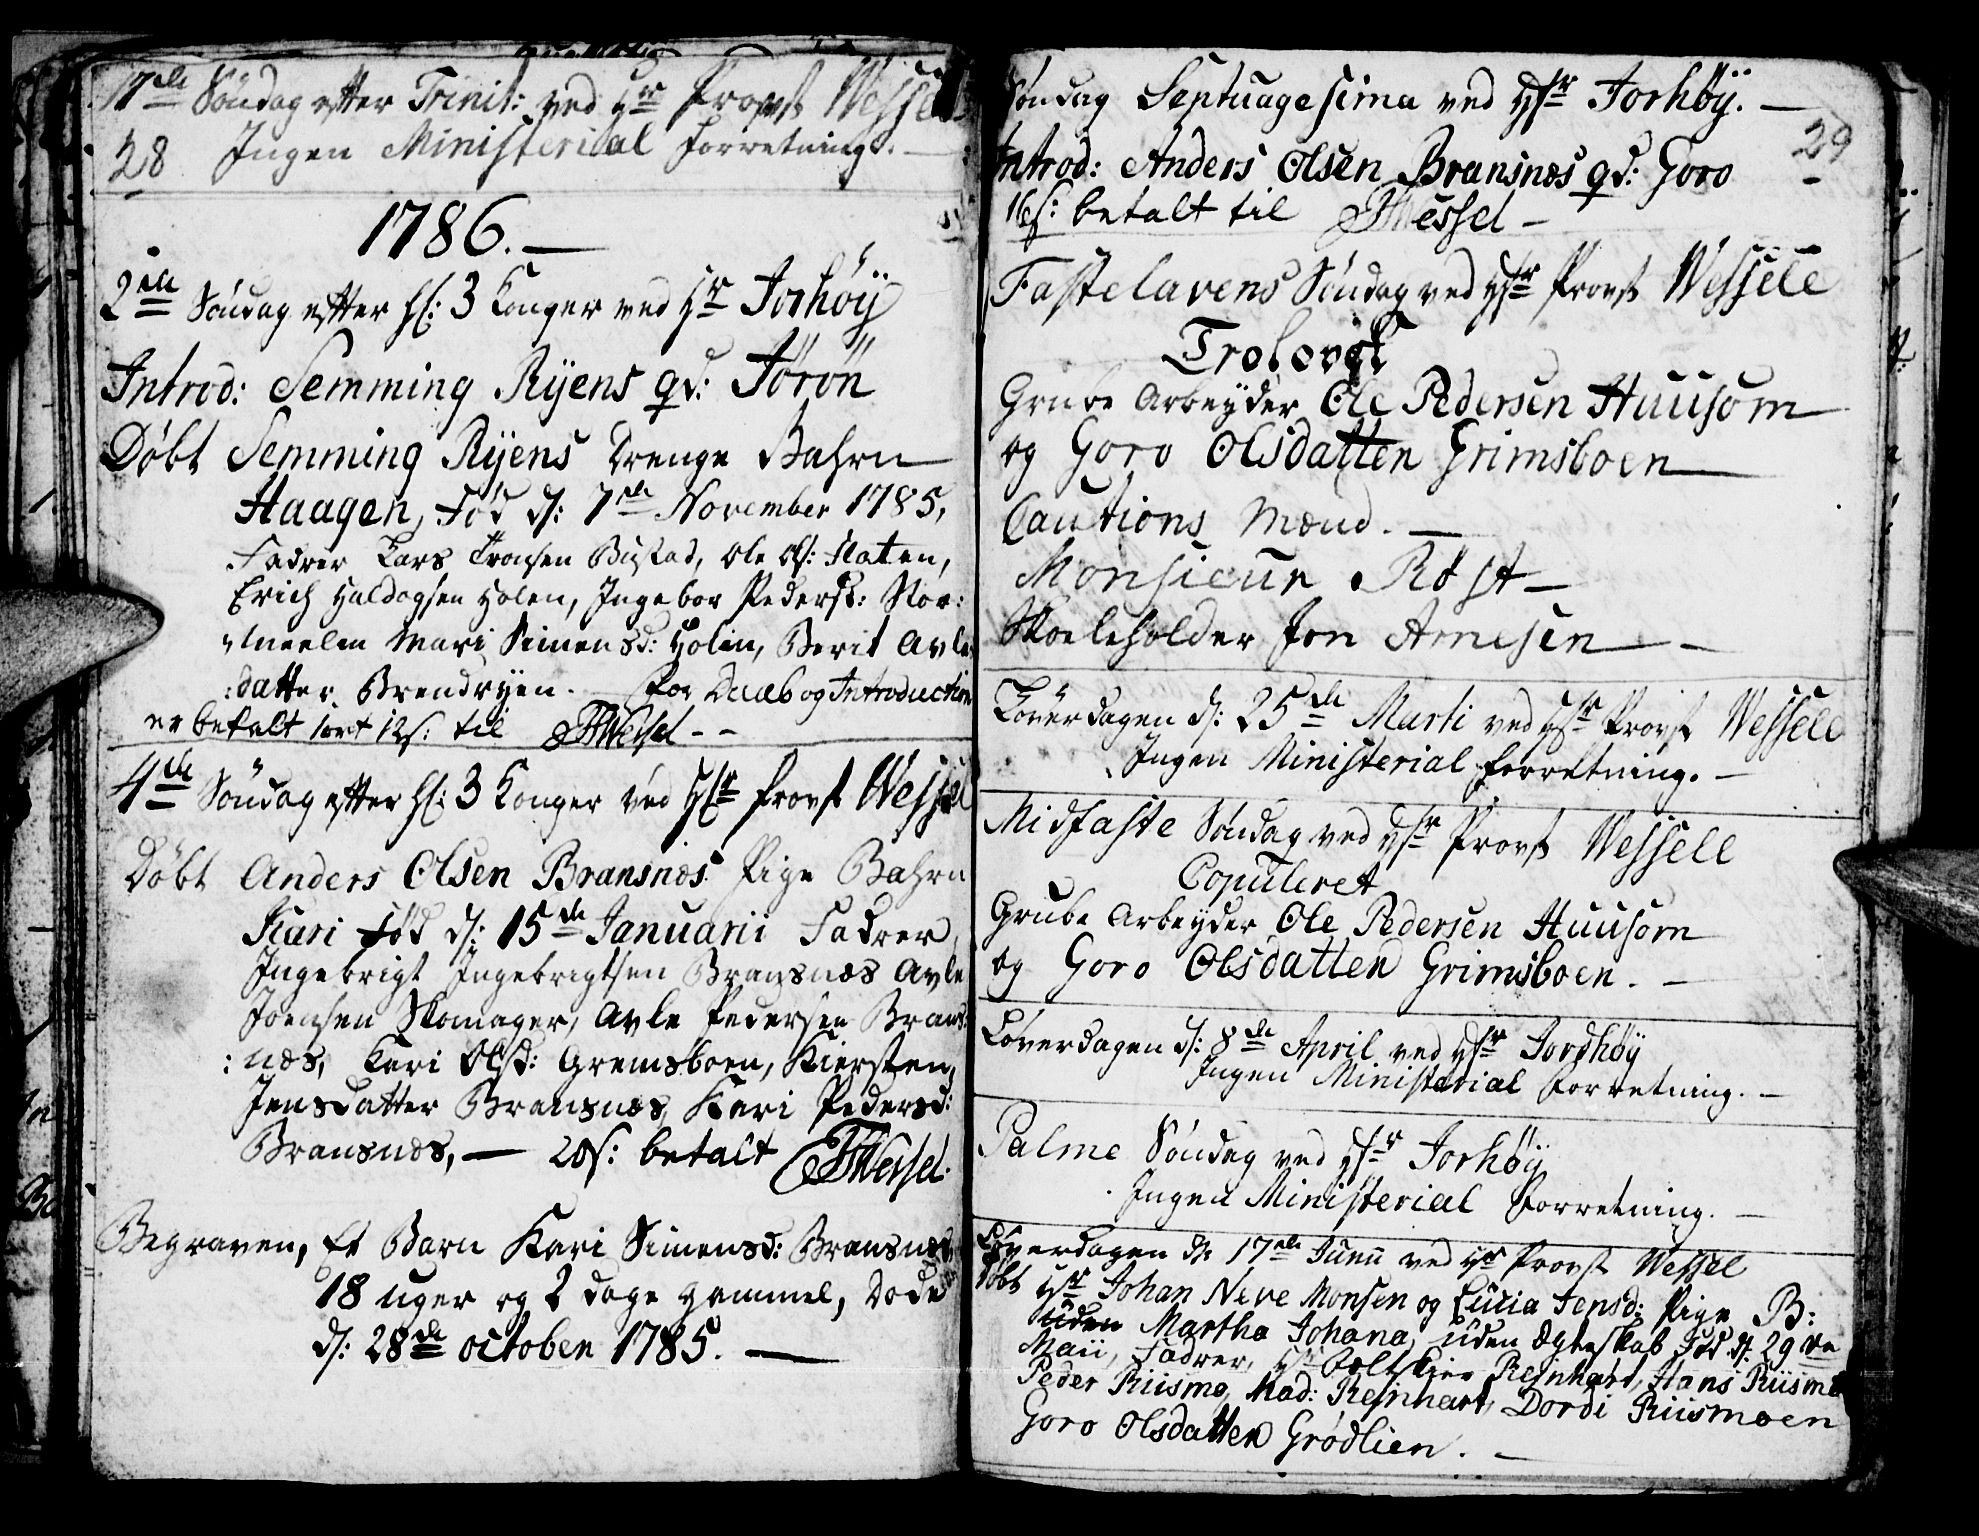 17de Søndag efter Trinit: ved Hr Provst Wessel
28 Ingen Ministerial Forretning. —
1786. —
2den Søndag efter hl: 3 Konger ved Hr Jorhöÿ
Introd: Semming Rÿens qd: Jörön
Døbt Semming Rÿens Drenge Bahrn
Haagen, Fød d: 7de November 1785,
Fadrer Lars Tronsen Bustad, Ole Ols: Flaten,
Erich Haldogsen Holen, Ingebor Pedersd: Nor:
Mari Simensd: Holen, Berit Avle
:datter Brendryen. For Daab og Introduction
er betalt 1ort 12s: til JHWessel - -
4de Søndag efter hl: 3 Konger ved Hr Provst Wessel
Døbt Anders Olsen Bransnæs Pige Bahrn
Kari Fød d: 15de Januarii Fadrer,
Ingebrigt Ingebrigtsen Bransnæs Avle
Joensen Skomager, Avle Pedersen Brans:
:næs, Kari Olsd: Gremsboen, Kiersten,
Jensdatter Bransnæs, Kari Pedersd:
Bransnæs, — 20s: betalt JHWessel.
Begraven, Et Barn Kari Simensd: Bransnæs
18 uger og 2 dage gammel, Døde
d: 28de october 1785. —
Søndag Septuagesima ved Hr Jorhöÿ. —
29
Introd: Anders Olsen Bransnæs qd: Goro
16s: betalt til JHWessel —
Fastelavens Søndag ved Hr Provst Wessell
Trolovet
Grube Arbeÿder Ole Pedersen Huusom
og Goro Olsdatter Grimsboen
Cautions Mænd. —
Monsieur Røst —
Skoleholder Jon Arnesen —
Løverdagen d: 25de Marti ved Hr Provst Wessell
Ingen Ministerial forretning. —
Midfaste Søndag ved Hr Provst Wessell
Copuleret
Grube Arbeyder Ole Pedersen Huusom
og Goro Olsdatter Grimsboen. —
Løverdagen d: 8de April ved Hr Jordhöÿ
Ingen Ministerial Forretning. —
Palme Søndag ved Hr Jorhöÿ
Ingen Ministerial Forretning. —
Løverdagen d: 17de Junii ved Hr Provst Wessel
Døbt Hr Johan Neve Monsen og Lucia Jensd: Pige B:
uden Martha Johana, uden Ægteskab Fød d: 29de
Maii, Fadrer, Hr Feltskier Reinhart, Hans Riismo
Peder Riismo, Mad: Reinhart, Dordi Riismoen
Goro Olsdatter Grødlien. —